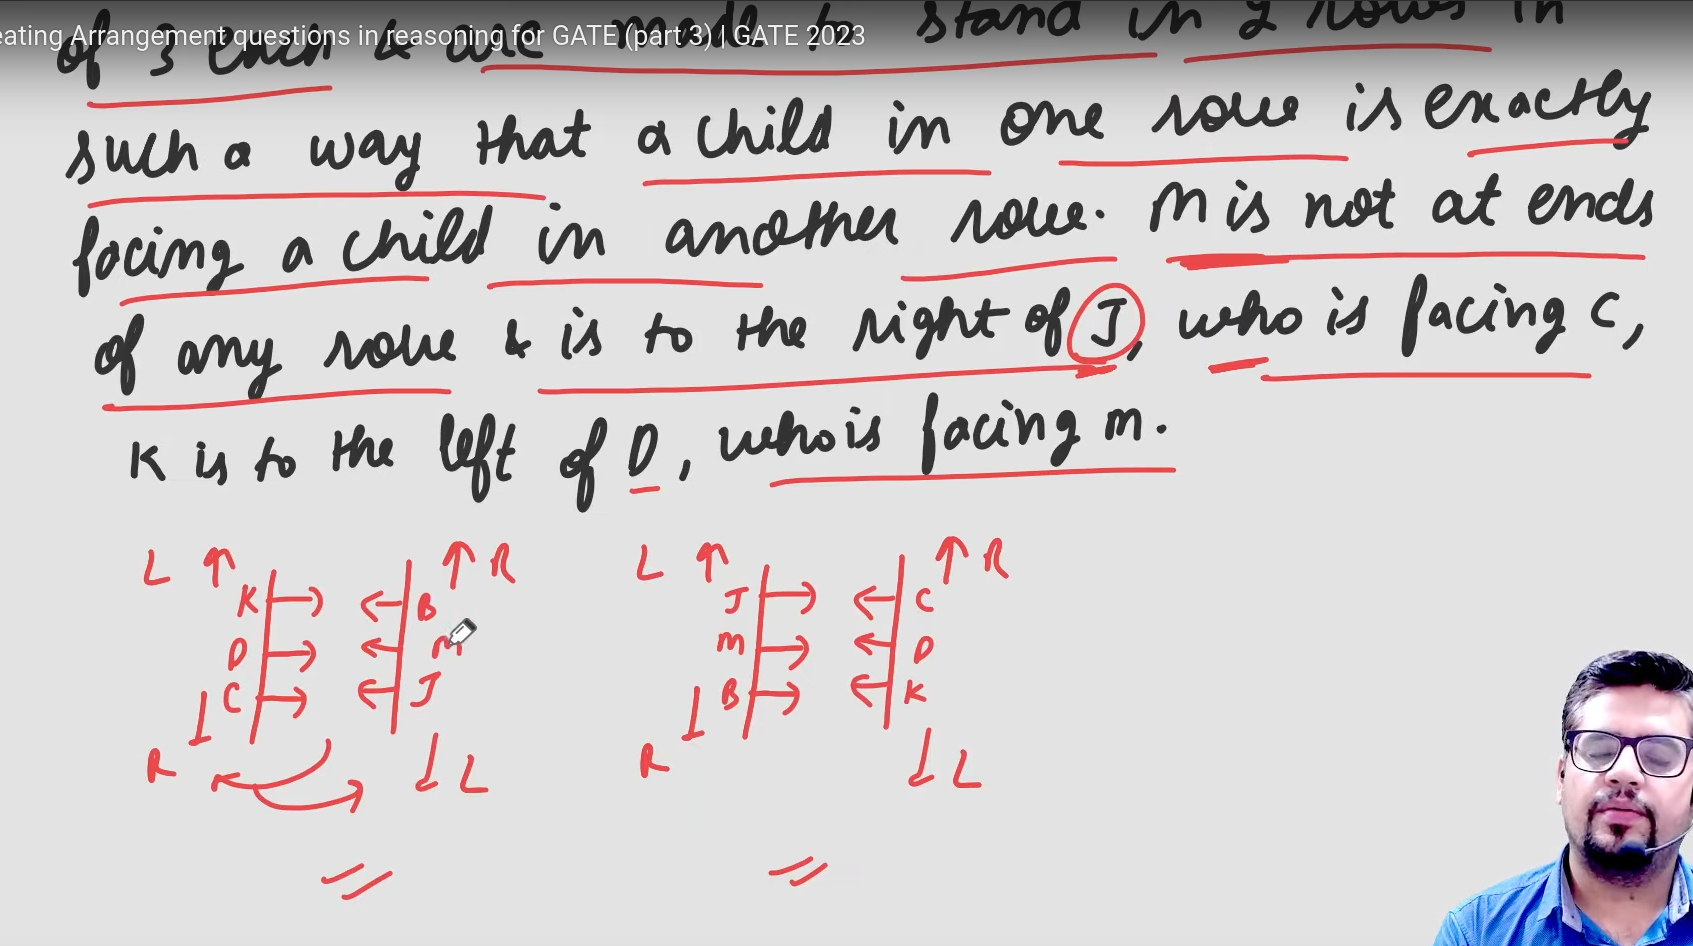 eating Arrangement questions in reasoning for GATE (part 3) | GATE 2023
of 3 each & are made to stand in 2 rows in
such a way that a child in one row is exactly
facing a child in another row. M is not at ends
of any row & is to the right of J, who is facing C,
K is to the left of D, who is facing m.
L ↑ ↑ R L ↑ ↑ R
K → ← B J → ← C
D → ← m m → ← D
C → ← J B → ← K
R ↓ ↓ L R ↓ ↓ L